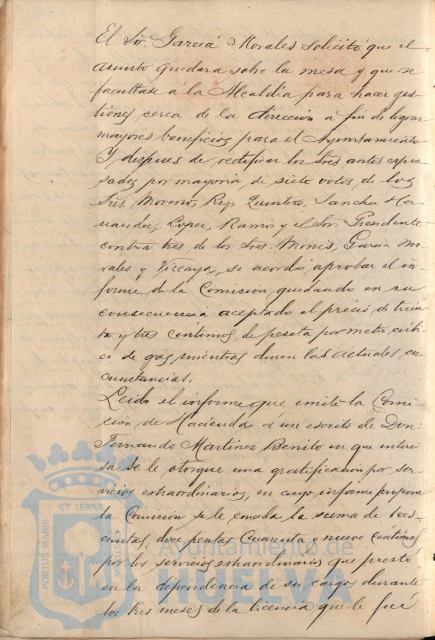 El Sr. García Morales solicitó que el
asunto quedara sobre la mesa y que se
facultase a la Alcaldía para hacer ges
tiones cerca de la dirección a fin de lograr
mayores beneficios para el Ayuntamiento
Y después de rectificar los Sres antes expre
sados por mayoría de siete votos de los
Sres. Moreno, Rey, Quintero, Sancha Her
nandez, López, Ramos y el Sr. Presidente
contra tres de los Sres. Monis, García Mo
rales y Vizcaya, se acordó aprobar el in
forme de la Comisión quedando en su
consecuencia aceptado el precio de trein
ta y tres centimos de peseta por metro cubi
co de gas, mientras duren las actuales cir
cunstancias.
Leido el informe que emite la Comi
sion de Hacienda a un escrito de Don
Fernando Martinez Benito en que intere
sa se le otorgue una gratificación por ser
vicios extraordinarios, en cuyo informe propone
la Comisión se le conceda la suma de tres
cientas doce pesetas cuarenta y nueve centimos
por los servicios extraordinarios que prestó
en la dependencia de su cargo durante
los tres meses de la licencia que le fué
ET TERRÆ
PORTUS MARIS
CUSTODIA
Ayuntamiento de
HUELVA